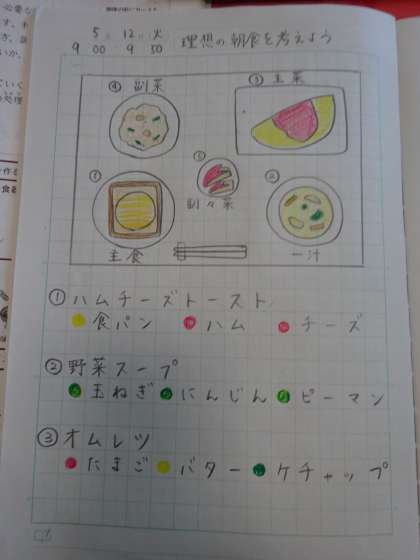 5 12 火
9 00 9 50 理想の朝食を考えよう
④ 副菜
③ 主菜
⑤
副々菜
①
主食
②
一汁
① ハムチーズトースト
食パン ハム チーズ
② 野菜スープ
玉ねぎ にんじん ピーマン
③ オムレツ
たまご バター ケチャップ